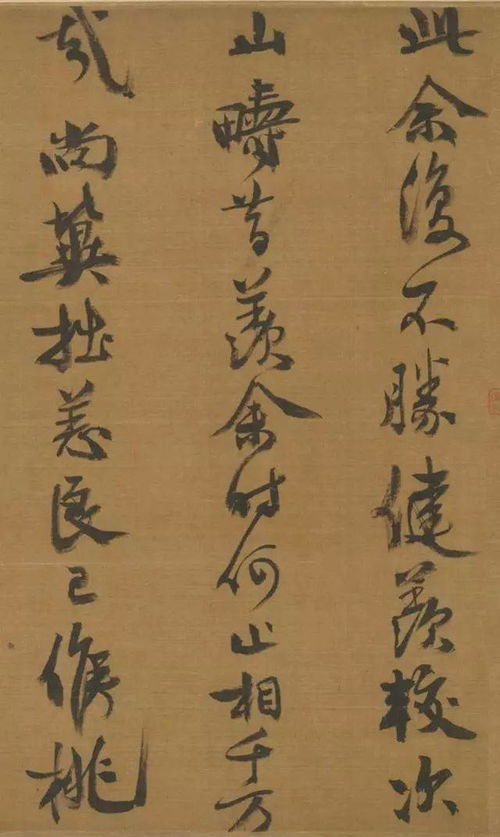 此余復不勝健羨較次
山疇昔羨余時何止相千万
哉尚冀拙恙良已候桃